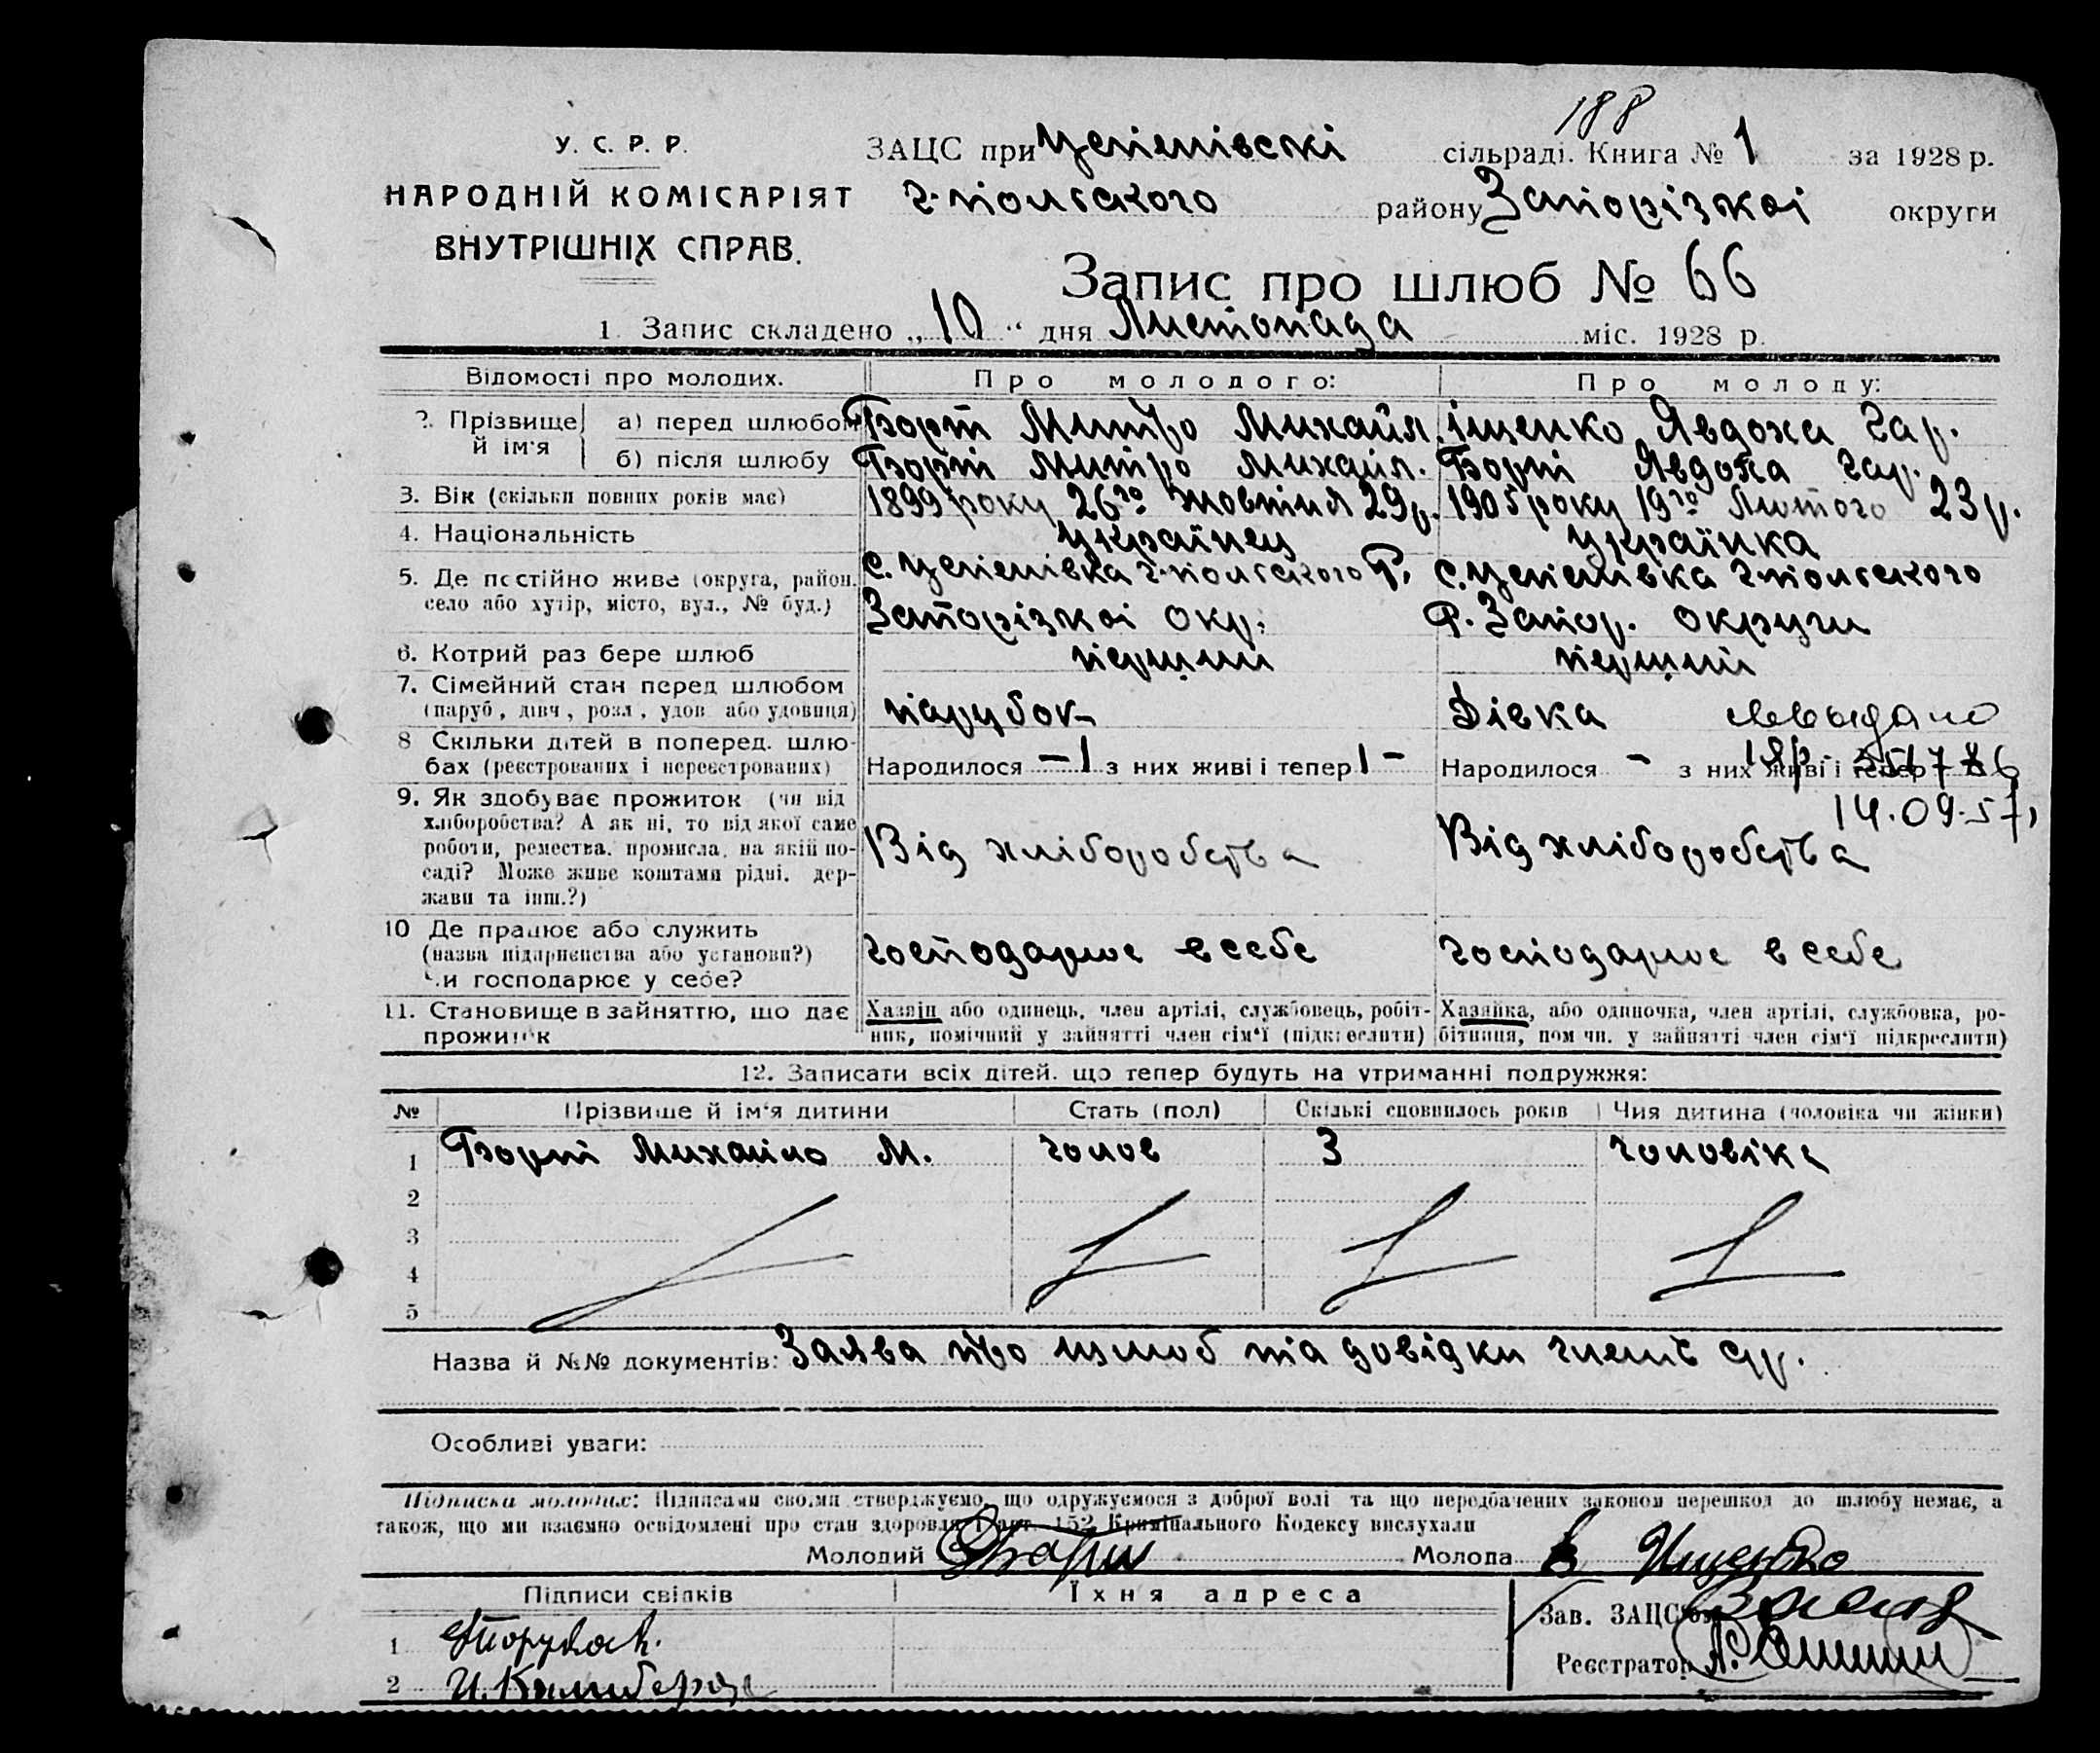 188
У. С. Р. Р.
НАРОДНІЙ КОМІСАРІЯТ
ВНУТРІШНІХ СПРАВ.
ЗАЦС при Успенівскі сільраді. Книга № 1 за 1928 р.
г-польского району Запорізкоі округи
Запис про шлюб № 66
1. Запис складено „ 10 “ дня Листопада міс. 1928 р.
Відомості про молодих. Про молодого: Про молоду:
2. Прізвище й ім'я
а) перед шлюбом Борт Митро Михайл. іщенко Явдоха Гар.
б) після шлюбу Борт Митро Михайл. Борт Явдоха Гар.
3. Вік (скільки повних років має) 1899 року 26го Жовтня 29 р. 1905 року 19го Лютого 23 р.
4. Національність українец українка
5. Де постійно живе (округа, район, село або хутір, місто, вул., № буд.)
с. Успенівка г-польского Р. Запорізкоі окр.
с. Успенівка г-польского Р. Запор. округи
6. Котрий раз бере шлюб перший перший
7. Сімейний стан перед шлюбом (паруб, дівч, розл, удов або удовиця) парубок Дівка
8 Скільки дітей в поперед. шлюбах (реєстрованих і нереєстрованих)
Народилося — 1 з них живі і тепер 1 —
Народилося - з них живі і тепер
14.09.57
9. Як здобуває прожиток (чи від хліборобства? А як ні, то від якої саме роботи, ремества, промисла, на якій посаді? Може живе коштами рідні, держави та інш.?)
Від хліборобства Від хліборобства
10 Де працює або служить (назва підприємства або установи?) Чи господарює у себе?
господарює в себе господарює в себе
11. Становище в зайняттю, що дає прожиток
Хазяін або одинець, член артілі, службовець, робітник, помічний у зайнятті член сім'ї (підкреслити)
Хазяйка, або одиночка, член артілі, службовка, робітниця, пом чн. у зайнятті член сім'ї підкреслити)
12. Записати всіх дітей, що тепер будуть на утриманні подружжя:
№ Прізвище й ім'я дитини Стать (пол) Скількі сповнилось років Чия дитина (чоловіка чи жінки)
1 Борт Михайло М. Чолов 3 Чоловіка
2
3
4
5
Назва й №№ документів: Заява про шлюб та довідки
Особливі уваги:
Підписка молодих: Підписами своїми стверджуємо, що одружуємося з доброї волі та що передбачених законом перешкод до шлюбу немає, а
також, що ми взаємно освідомлені про стан здоровля і арт. 152 Кримінального Кодексу вислухали
Молодий Молода Ищенко
Підписи свідків Їхня адреса
Зав. ЗАЦС'ом
Реєстратор
1
2